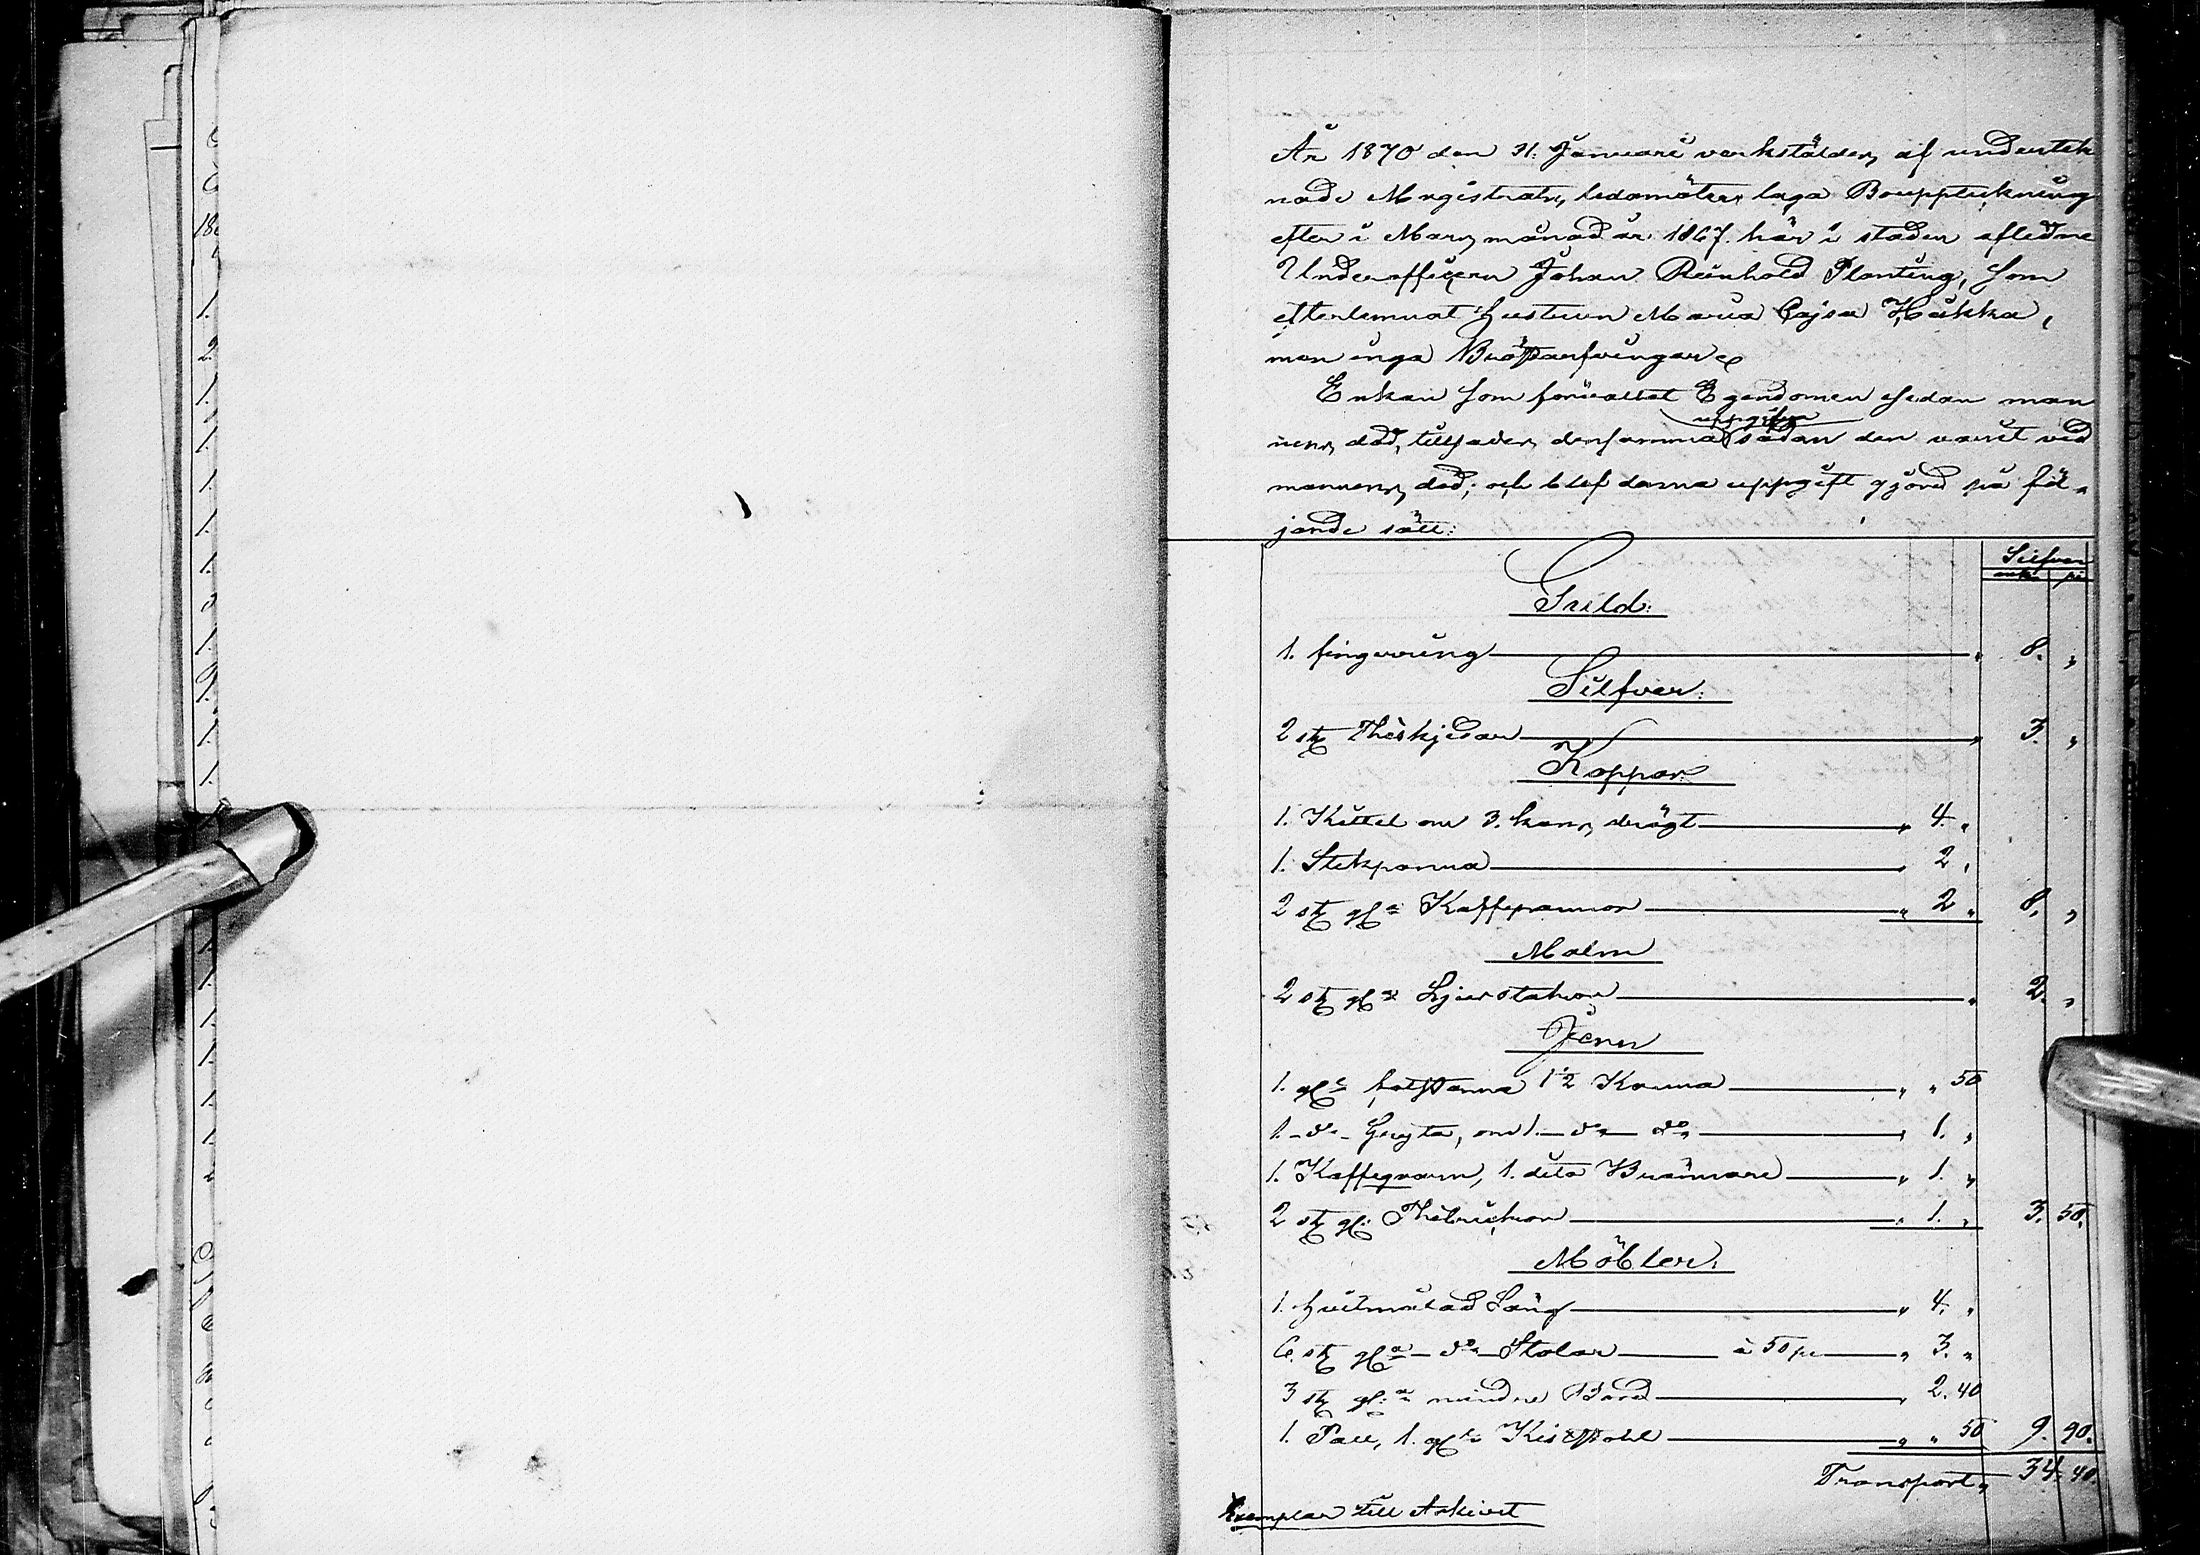 År 1870 den 31. Januari verkstäldes af underteknade
Magistrats ledamöter laga Bouppteckning
efter i Mars månad år 1867. här i staden aflednе
Underofficern Johan Reinhold Planting, som
efterlemnat Hustrun Maria Cajsa Hukka,
men inga Bröstarfvingar.
Enkan som förvaltat Egendomen sedan man
nens död, tillsades densamma uppgifva sådan den varit ved
mannens död; och blef denna uppgift gjord på föl-
jande sätt:
Silfver
mk pi
Guld:
1. fingerring " 8. "
Silfver:
2 st Theskjedar " 3. "
Koppar:
1. Kittel om 3. kans drägt " 4. "
1. Stekpanna " 2 "
2 st gla Kaffepannor " 2 " 8. "
Malm
2 st gla Ljusstakar " 2. "
Jern
1. gl 1/2 Kanna " " 50
1 - do - Gryta, om 1. - do - do " 1. "
1. Kaffeqvarn, 1. dito Brännare " 1. "
2 st gl: Thebrickor " 1. " 3. 50.
Möbler:
1. hvitmålad Säng " 4. "
6. st gla - do - Stolar à 50 pi " 3. "
3 st gl:a mindre Bord " 2. 40
1. Pall, 1. gl " " 50 9. 90.
Transport " 34. 40.
Exemplar till Arkivet